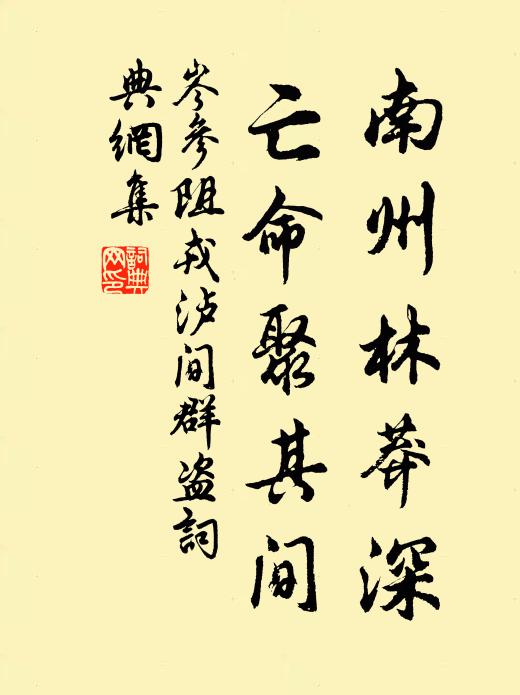 南州林莽深
亡命聚其间
岑参阻戎泸间群盗词
典網集
詞典
网印